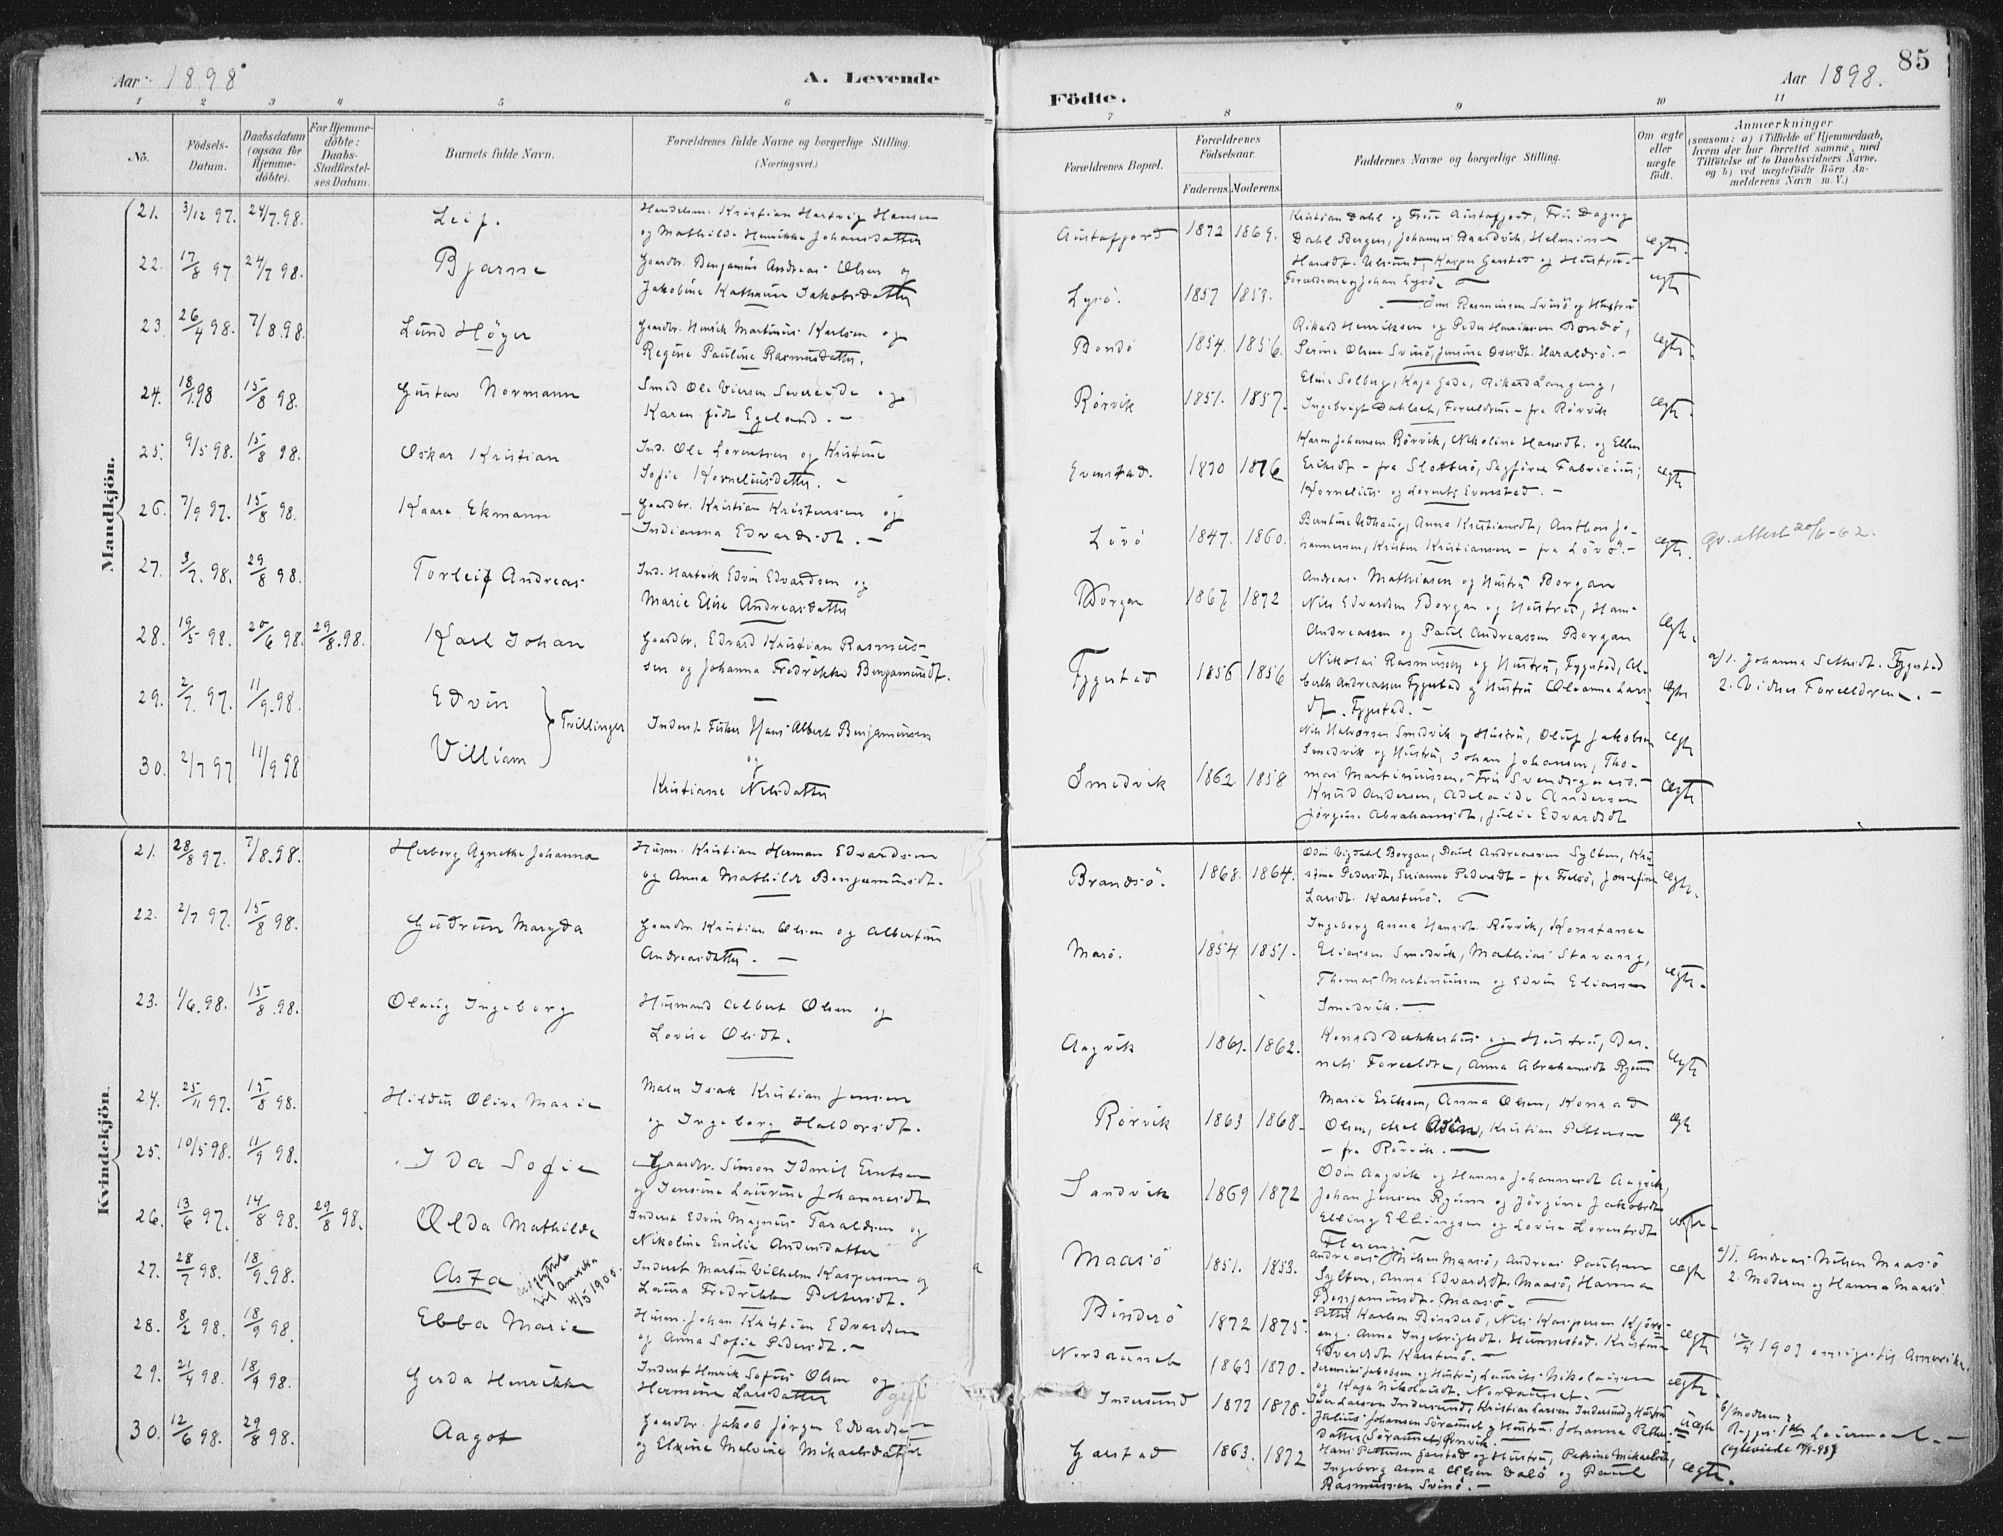 Aar 1898.
A. Levende
1 2 3 4 5 6
No.
Födsels-Datum.
Daabsdatum (ogsaa for Hjemme-döbte).
For Hjemme-döbte: Daabs-Stadfæstel-ses Datum.
Barnets fulde Navn.
Forældrenes fulde Navne og borgerlige Stilling.
(Næringsvei.)
Mandkjön.
21. 3/12 97. 24/7.98. Leif. Handelsm. Kristian Hartvig Hansen
og Mathilde Henrikke Johansdatter
22. 17/8 97. 24/7 98. Bjarne Gaardbr. Benjamin Andreas Olsen og
Jakobine Kathrine Jakobsdatter
23. 26/4 98. 7/8.98. Lund Höyer Gaardbr. Henrik Martinus Karlsen og
Regine Pauline Rasmusdatter.
24. 18/1.98 15/8 98. Gustav Normann Smed Ole Viersen Severeide og
Karen födt Egeland. -
25. 9/5 98. 15/8 98. Oskar Kristian Ind. Ole Lorentsen og Kristine
Sofie Korneliusdatter. -
26. 7/9 97. 15/8 98. Kaare Ekmann Gaardbr. Kristian Kristensen og
Indianna Edvardsdt. -
27. 3/7. 98. 29/8 98. Torleif Andreas Ind. Hartvik Edvin Edvardsen og
Marie Elise Andreasdatter
28. 19/5 98. 20/6 98. 29/8.98. Karl Johan Gaardbr. Edvard Kristian Rasmus-
sen og Johanna Fredrikke Benjaminsdt.
29. 2/7 97. 11/9.98. Edvin
Tvillinger Inderst Fisker Hans Albert Benjaminsen
og
30. 2/7 97 11/9 98 Villiam
Kristiane Nilsdatter
Kvindekjön.
21. 28/8 97. 7/8.98. Herborg Agnethe Johanna Husm. Kristian Herman Edvardsen
og Anna Mathilde Benjaminsdt.
22. 2/7 97. 15/8 98. Gudrun Magda Gaardbr. Kristian Olsen og Albertine
Andreasdatter. -
23. 1/6.98. 15/8.98. Olaug Ingeborg Husmand Albert Olsen og
Lovise Olsdt.
24. 25/11 97. 15/8 98. Hildur Oliva Marie Maler Isak Kristian Jensen
og Ingeborg Haldorsdt.
25. 10/5 98. 11/9 98. Ida Sofie Gaardbr. Simon Idmil Erntsen
og Jensine Laurine Johannesdt
26. 13/6 97. 14/8 98. 29/8 98. Olda Mathilde Inderst Edvin Magnus Taraldsen og
Nikoline Emilie Andersdatter
27. 28/7 98. 18/9.98. Asta Inderst Martin Vilhelm Kaspersen og
udflyttet til Amerika 4/5 1900.
Laura Fredrikke Pettersdt.
28. 8/2 98. 18/9 98. Ebba Marie Husm. Johan Kristian Edvardsen
og Anna Sofie Pedersdt. -
29. 21/4 98. 18/9 98. Gerda Henrikke Inderst Henrik Sofus Olsen og
Hermine Larsdatter
30. 12/6 98. 29/8 98. Aagot Gaardbr. Jakob Jörgen Edvardsen
og Elzine Melvine Mikaelsdatter
85
Födte.
Aar 1898.
7 8 9 10 11
Forældrenes Bopæl.
Forældrenes Födselsaar.
Faderens. Moderens.
Faddernes Navne og borgerlige Stilling.
Om ægte eller uægte födt.
Anmærkninger
(saasom: a) i Tilfælde af Hjemmedaab,
hvem der har forrettet samme, med
Tilföielse af to Daabsvidners Navne,
og b) ved uægtefödte Börn An-
melderens Navn m. V.)
Austafjord 1872 1869. Kristian Dahl og Frue Austafjord, Frk Dagny
Dahl Bergen, Johannes Baardvik, Helmine
Hansdt. Ulsund, Kasper Garstad og Hustru - ægte.
Lysö. 1857 1858. Forældrene og Johan Lysö -
Jens Rasmussen Svinö og Hustru ægte
Bondö 1854. 1856. Rikard Henriksen og Peder Henriksen Bondö,
Serine Olsen Svinö, Jensine Oversdt. Haraldsö. - ægte.
Rörvik 1851. 1857. Eline Solberg, Kaja Gade, Rikard Langeng,
Ingebrigt Dahlseth, Forældrene - fra Rörvik ægte.
Evenstad. 1870 1876 Karen Johansen Rörvik, Nikoline Hansdt. og Ellen
Eriksdt - fra Slotterö, Sagförer Fabricius;
Kornelius og Lorents Evenstad. - ægte
Lövö 1847. 1860. Berntine Udhaug, Anna Kristiansdt, Anthon Jo-
hannessen, Kristen Kristiansen - fra Lövö. - ægte. Gv. attest 20/6-62.
Borgan 1867 1872 Andreas Mathiasen og Hustru Borgan
Nils Edvardsen Borgan og Hustru, Hans
Andreassen og Paul Andreassen Borgan ægte.
Fygstad 1856 1856 Nikolai Rasmussen og Hustru, Fygstad, Al-
berth Andreassen Fygstad og Hustru Oleanna Lars-
dt. Fygstad. - ægte
a/1. Johanna Sethsdt. Fygstad
2. Vidner Forældrene. -
Smedvik 1862 1858 Nils Halvorsen Smedvik og Hustru, Oluf Jakobsen
Smedvik og Hustru, Johan Johansen, Tho-
mas Martinussen, Frk Svendsgaard. -
Knud Andersen, Adelaide Andersen
Jörgine Abrahamsdt, Julie Edvardsdt ægte ægte
Brandsö. 1868. 1864. Odin Vigdahl Borgan, Paul Andreassen Sylten, Kri-
stine Pedersdt, Serianne Pedersdt - fra Frelsö, Josefine
Larsdt. Karstenö. - ægte.
Marö. 1854 1851. Ingeborg Anna Hansdt. Rörvik, Konstance
Eliassen Smedvik, Mathias Stavang,
Thomas Martinussen og Edvin Eliassen
Smedvik. - ægte.
Aagvik 1861. 1862. Konrad Dekkerhus og Hustru, Bar-
nets Forældre, Anna Abrahamsdt Ryum ægte
Rörvik 1863 1868. Marie Eriksen, Anna Olsen, Konrad
Olsen, Axel Olsen, Kristian Pettersen
- fra Rörvik. - ægte
Sandvik 1869 1872 Odin Aagvik og Hanna Johannesdt Aagvik,
Johan Jensen Ryum og Jörgine Jakobsdt
Elling Ellingsen og Lovise Lorentsdt
Flosen. ægte.
Maasö 1851. 1853. Andreas Nilsen Maasö, Andreas Paulsen
Sylten, Anna Edvardsdt. Maasö, Hanna
Benjaminsdt. Maasö. - ægte
a/1. Andreas Nilsen Maasö
2. Moderen og Hanna Maasö
Bindersö 1872 1875. Petter Karlsen Bindersö, Nils Kaspersen Kjöns-
eng. Anna Ingebrigtsdt. Hunnestad. Kristine
Edvardsdt Karstenö. - ægte 1903 emigr. til Amerika.
Nordaunet 1863 1870. Jeremias Jakobsen og Hustru, Laurits Nikolaisen
og Kaja Nikolaisdt. Nordaunet. - ægte.
Indersund 1872 1878. Iver Larsen Indersund, Kristian Larsen Indersund og Hustru
Julius Johansen Söraunet og Hustru. Johanna Petters-
datter (Söraunet) Rörvik. uægte
b/ Moderen
Begges 1ste Leiermaal. -
Garstad 1863. 1872 Hans Pettersen Garstad og Hustru, Petrine Mikaelsdt,
Ingeborg Anna Olsen Dalö og Paul
Rasmussen Svinö. - ægte.